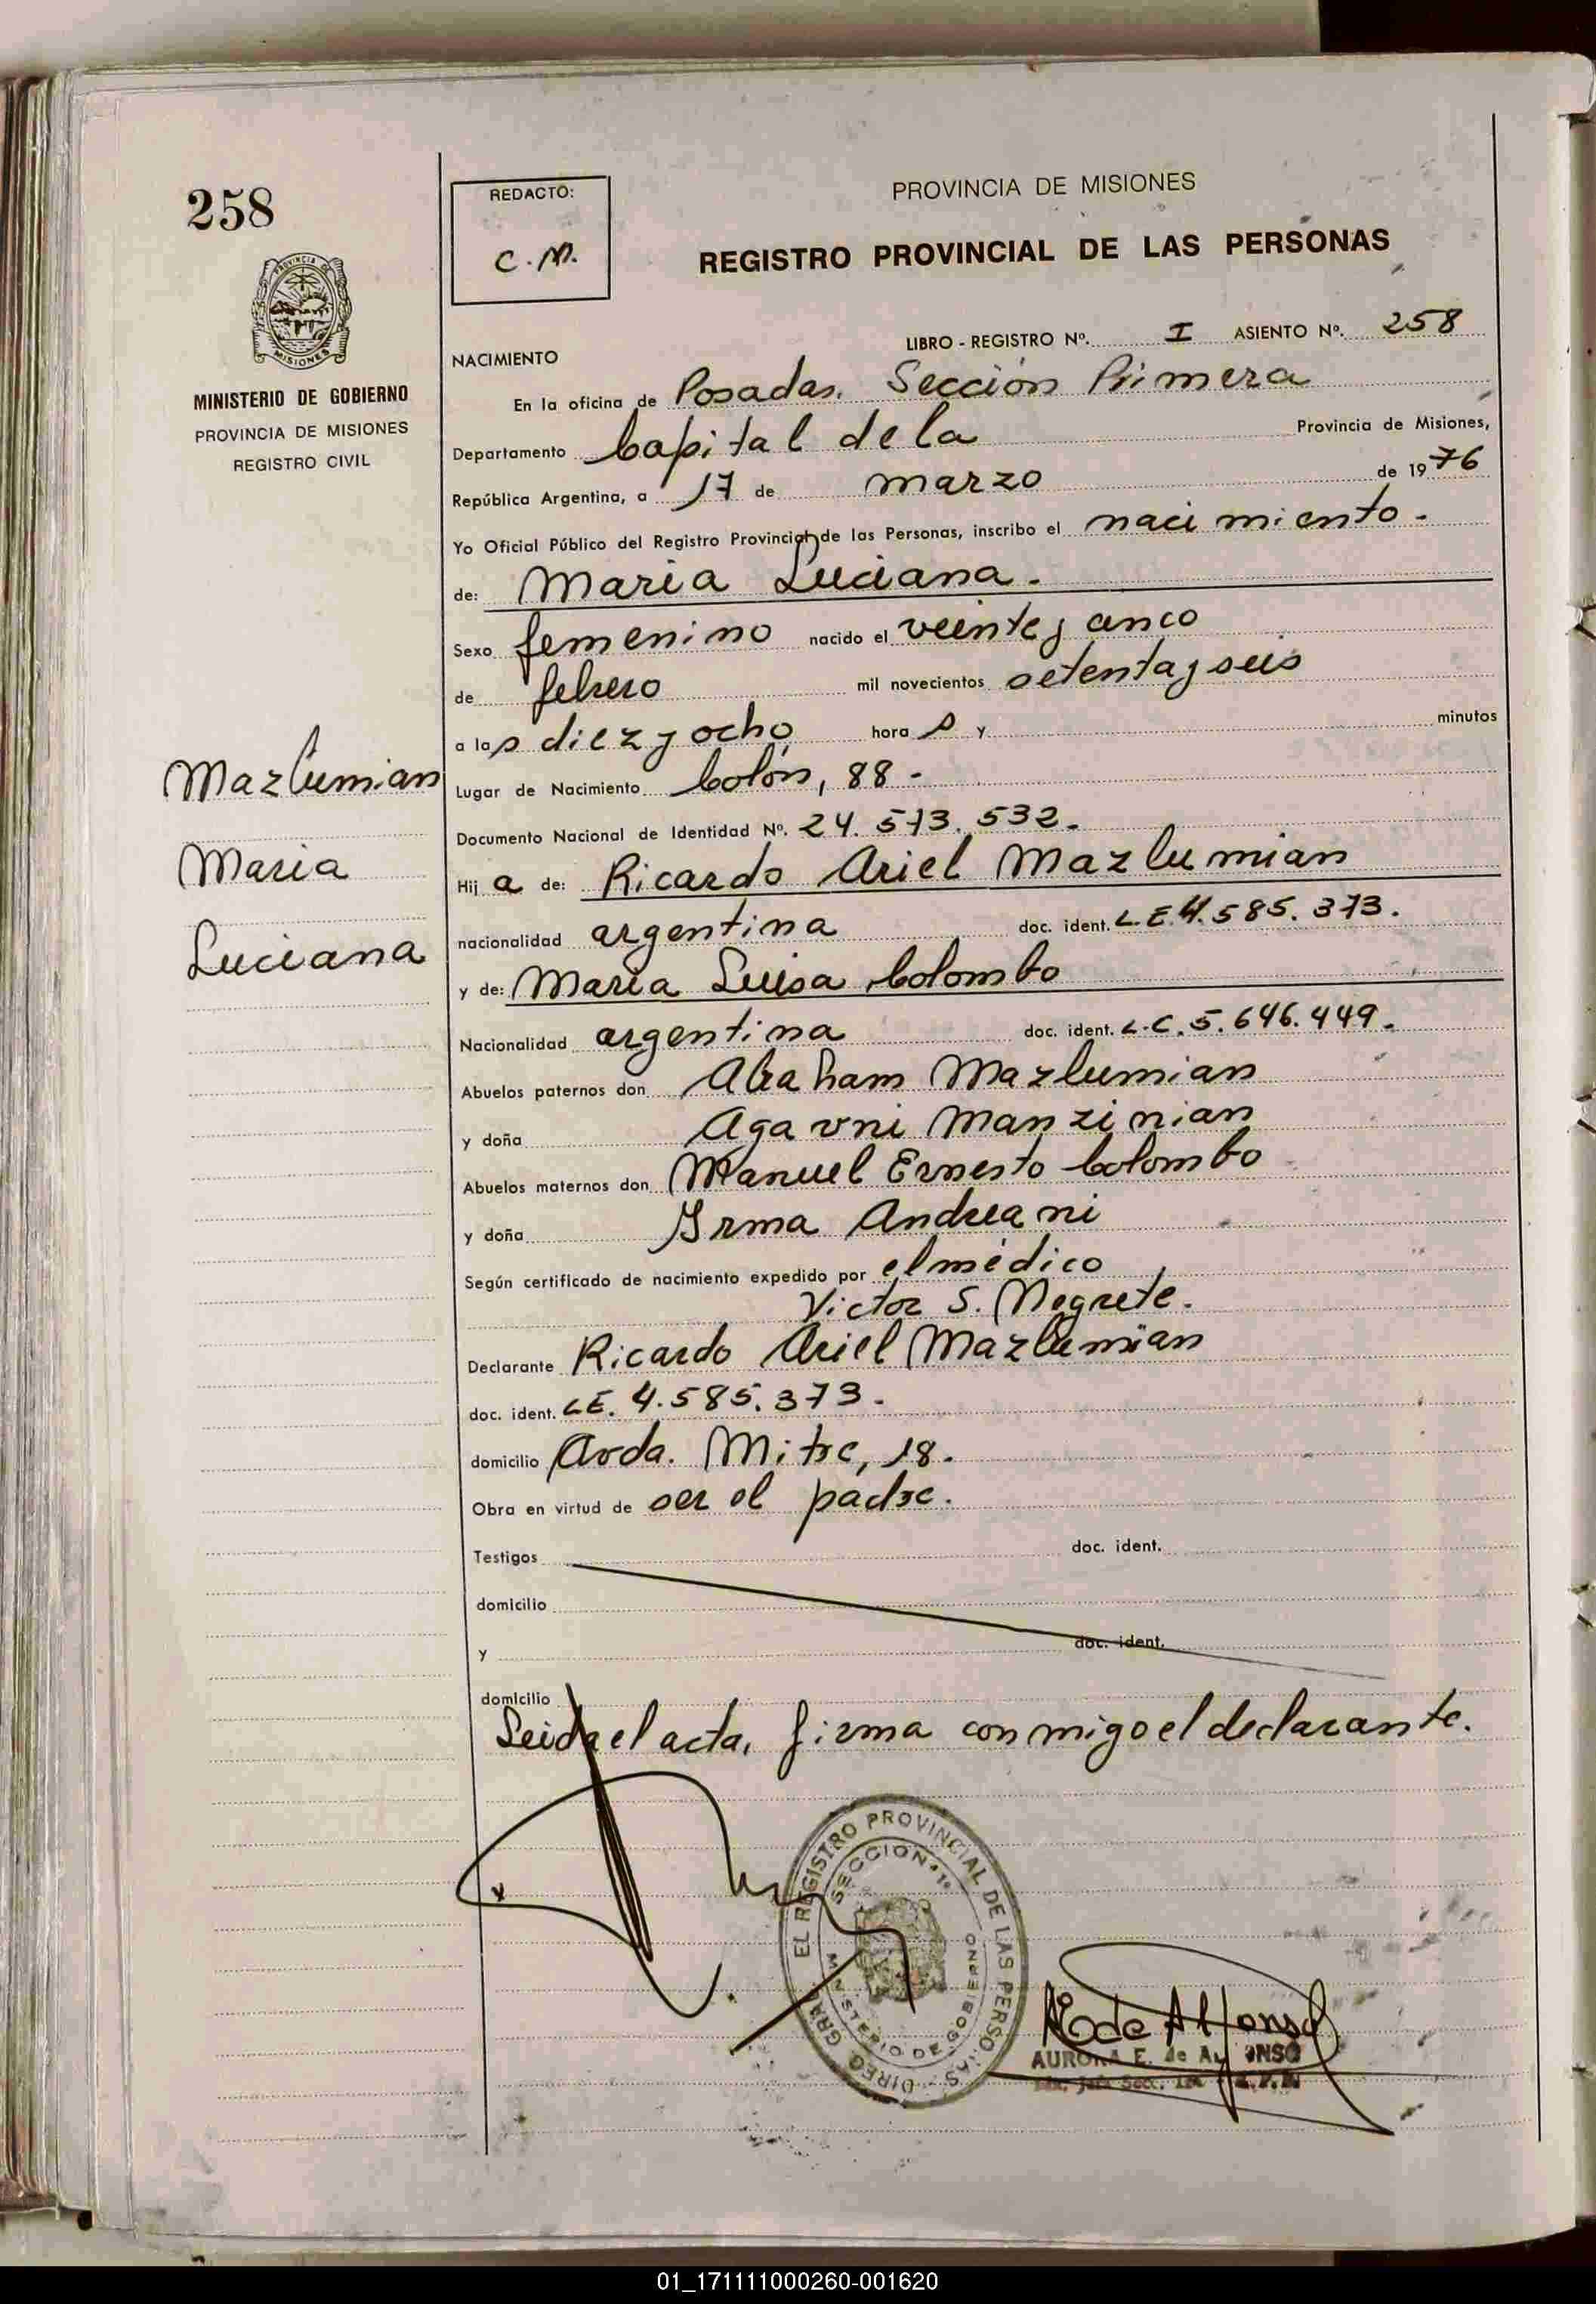 258
REDACTO:
C. M.
PROVINCIA DE MISIONES
REGISTRO PROVINCIAL DE LAS PERSONAS
PROVINCIA DE
MISIONES
MINISTERIO DE GOBIERNO
PROVINCIA DE MISIONES
REGISTRO CIVIL
LIBRO - REGISTRO Nº. I ASIENTO Nº. 258
NACIMIENTO
En la oficina de Posadas. Sección Primera
Departamento Capital de la Provincia de Misiones,
República Argentina, a 17 de marzo de 1976
Yo Oficial Público del Registro Provincial de las Personas, inscribo el nacimiento.
de: Maria Luciana.
Sexo femenino nacido el veinte y cinco
de febrero mil novecientos setenta y seis
a las diez y ocho hora s y minutos
Lugar de Nacimiento Colón, 88.
Documento Nacional de Identidad Nº. 24.573.532.
Hij a de: Ricardo Ariel Mazlumian
nacionalidad argentina doc. ident. L.E. 4.585.373.
y de: Maria Luisa Colombo
Nacionalidad argentina doc. ident. L.C. 5.646.449.
Abuelos paternos don Abraham Mazlumian
y doña Agavni Manzinian
Abuelos maternos don Manuel Ernesto Colombo
y doña Irma Andreani
Según certificado de nacimiento expedido por el médico
Victor S. Negrete.
Declarante Ricardo Ariel Mazlumian
doc. ident. LE. 4.585.373.
domicilio Avda. Mitre, 18.
Obra en virtud de ser el padre.
Testigos doc. ident.
domicilio
y doc. ident.
domicilio
Leida el acta, firma conmigo el declarante.
Mazlumian
Maria
Luciana
DIREC. GRAL. EL REGISTRO PROVINCIAL DE LAS PERSONAS
SECCION 1ª
MINISTERIO DE GOBIERNO
de Alfonso
AURORA E. de ALFONSO
01_171111000260-001620